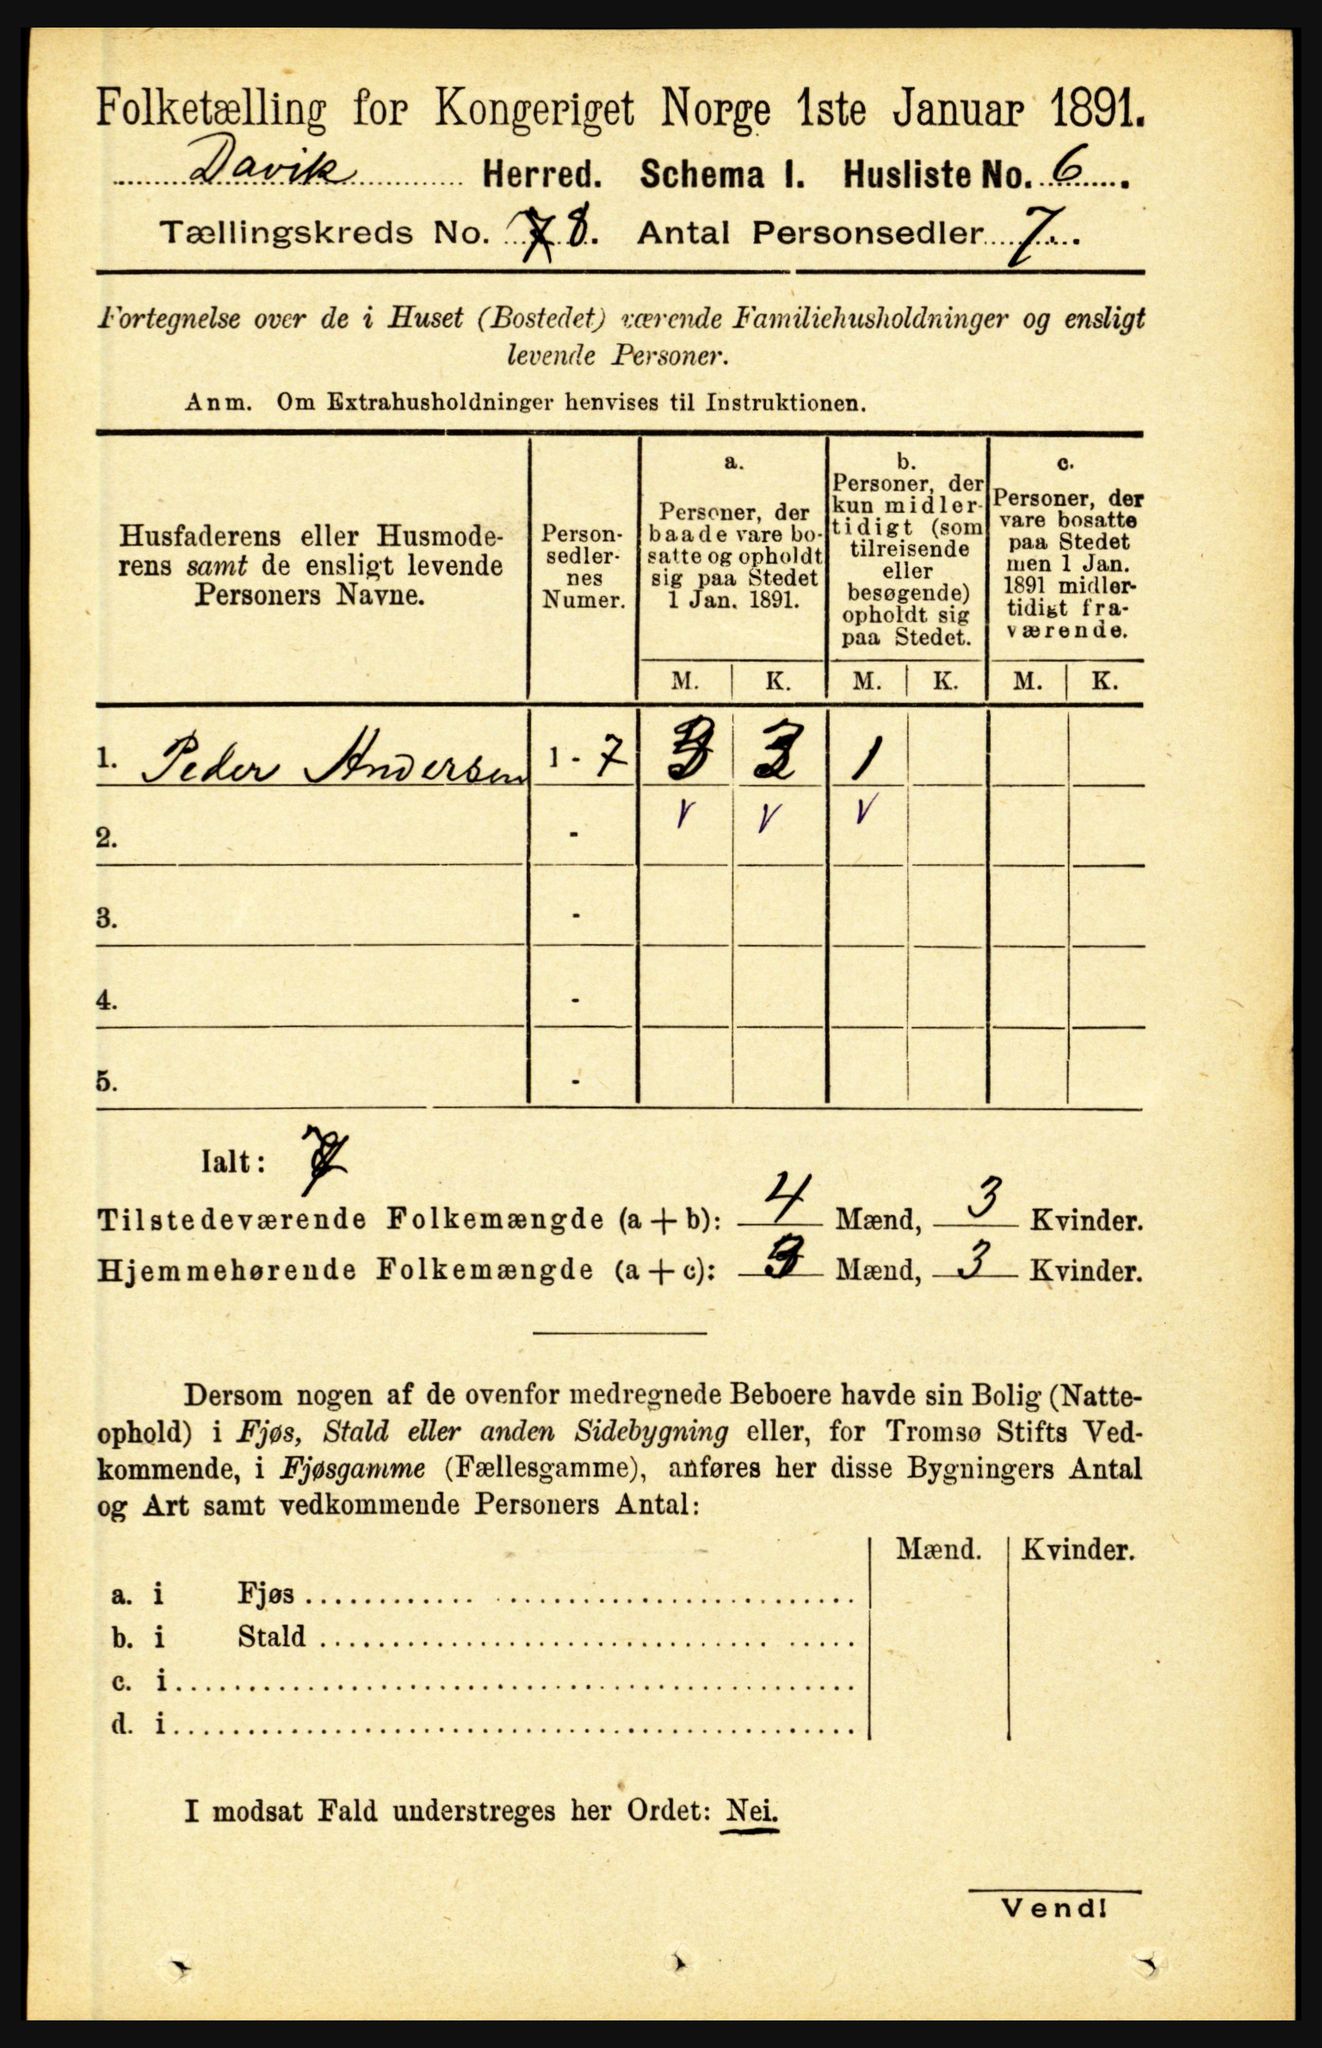 Folketælling for Kongeriget Norge 1ste Januar 1891.
Davik Herred. Schema I. Husliste No. 6.
Tællingskreds No. 8. Antal Personsedler 7.
Fortegnelse over de i Huset (Bostedet) værende Familiehusholdninger og ensligt
levende Personer.
Anm. Om Extrahusholdninger henvises til Instruktionen.
Husfaderens eller Husmode-
rens samt de ensligt levende
Personers Navne.
Person-
sedler-
nes
Numer.
a.
Personer, der
baade vare bo-
satte og opholdt
sig paa Stedet
1 Jan. 1891.
b.
Personer, der
kun midler-
tidigt (som
tilreisende
eller
besøgende)
opholdt sig
paa Stedet.
c.
Personer, der
vare bosatte
paa Stedet
men 1 Jan.
1891 midler-
tidigt fra-
værende.
M. K. M. K. M. K.
1. Peder Andersen 1 - 7 3 3 1
2. - v v v
3. -
4. -
5. -
Ialt: 7
Tilstedeværende Folkemængde (a + b): 4 Mænd, 3 Kvinder.
Hjemmehørende Folkemængde (a + c): 3 Mænd, 3 Kvinder.
Dersom nogen af de ovenfor medregnede Beboere havde sin Bolig (Natte-
ophold) i Fjøs, Stald eller anden Sidebygning eller, for Tromsø Stifts Ved-
kommende, i Fjøsgamme (Fællesgamme), anføres her disse Bygningers Antal
og Art samt vedkommende Personers Antal:
Mænd. Kvinder.
a. i Fjøs
b. i Stald
c. i
d. i
I modsat Fald understreges her Ordet: Nei.
Vend!